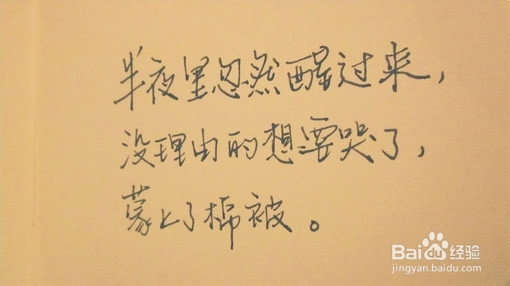 半夜里忽然醒过来，
没理由的想要哭了，
蒙上了棉被。
Baidu 经验
jingyan.baidu.com